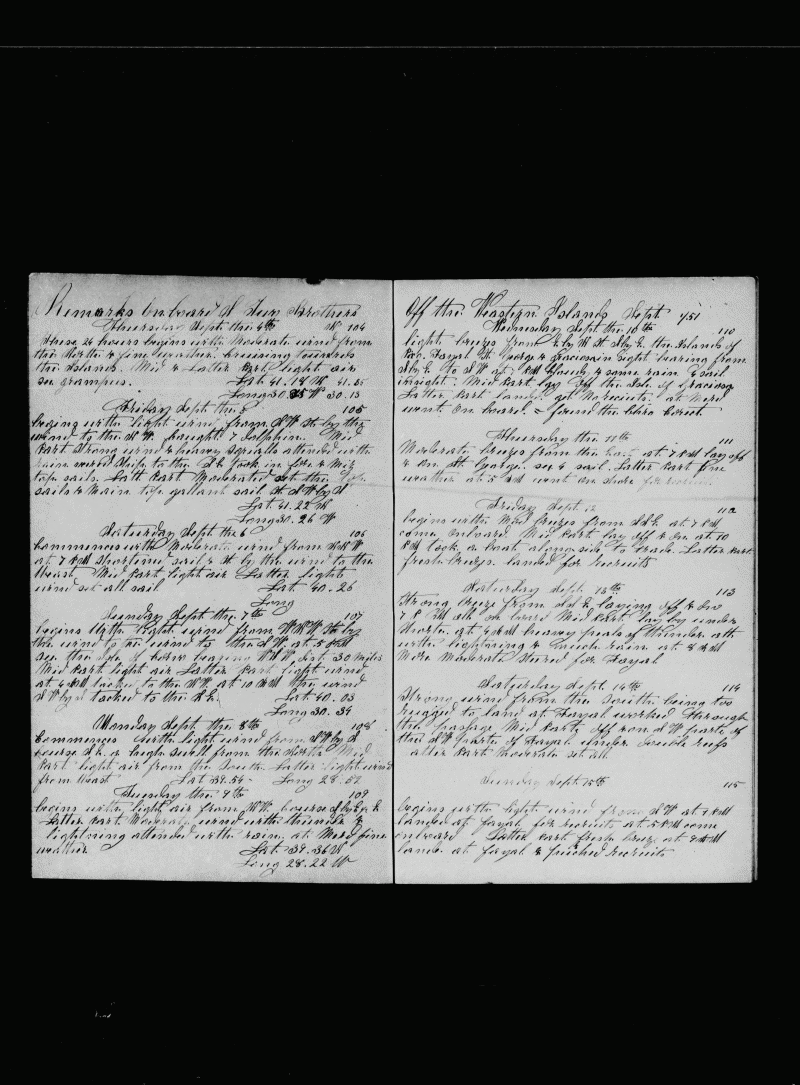 Remarks Onboard S Two Brothers
Thursday Sept the 4th 104
these 24 hours begins with Moderate wind from
the North & fine weather. Cruising towards
the Islands. Mid & Latter Part light air
see grampus. Lat 41.18 N 41.25
Long 30. W 30.13
Friday Sept the 5 105
begins with light wind from S W St by the
wind to the S W. Caught 7 Dolphin. Mid
Part Strong wind & heavy squalls attended with
rain wore Ship to the S E took in fore & Miz
top sails. Latt Part Moderated set the top
sails & Main top gallant sail St S W by S
Lat 41.22 N
Long 30.26 W
Saturday Sept the 6 106
Commences with Moderate wind from
at 7 PM Shortened sail & St by the wind to the
West Mid Part light air Latter light
wind set all sail Lat 40.26
Long
Sunday Sept the 7th 107
begins With light wind from W N W St by
the wind to the wind to the S W. at 5 PM
see the Isle of bearing dist 30 miles
Mid Part light air Latter Part light wind
at 4 AM tacked to the at 10 AM the wind
S W by tacked to the S E. Lat 40.03
Long 30.34
Monday Sept the 8th 108
Commences with light wind from S W by S
Course S E. a high swell from the North Mid
Part light air from the South Latter light wind
from West Lat 39.54 Long 28.52
Tuesday the 9th 109
begins with light air from Course S by E
Latter Part Moderate wind with thunder &
lightning attended with rain, at Mer fine
weather Lat 39.36 N
Long 28.22 W
Off the Western Islands Sept /51
Wednesday Sept the 10th 110
light breeze from the Islands of
Fayal St George & Graciosa in Sight bearing from
to S W at PM & some rain & sail
in sight. Mid Part lay Off the Isle of Graciosa
Latter Part land. got No recruits, at Mer
went On board & found the Chro Correct
Thursday the 11th 111
Moderate breeze from the East at 7 PM lay off
& on St George. see 4 sail. Latter Part fine
weather at 5 AM went on shore for recruits
Friday Sept. 12 112
begins with Mod breezes from S E at 7 PM
came Onboard Mid Part lay Off & On at 10
PM took a boat alongside to trade. Latter Part
fresh breeze. landed for recruits
Saturday Sept. 13th 113
Strong breeze from S S E laying Off & On
7 PM on board Mid Part lay by under
Short. at 4 AM heavy peals of thunder
with lightning & much rain at 8 AM
More Moderate Steered for Fayal
Saturday Sept. 14th 114
Strong wind from the South being too
rugged to land at Fayal worked through
the passage Mid Part off & on S W parts of
the S W parts of Fayal under double reefs
latter Part Moderate set all
Sunday Sept. 15th 115
begins with light wind from S W at 1 PM
landed at fayal for recruits at 5 PM came
onboard Latter Part fresh breeze at 8 AM
land at fayal & finished recruits